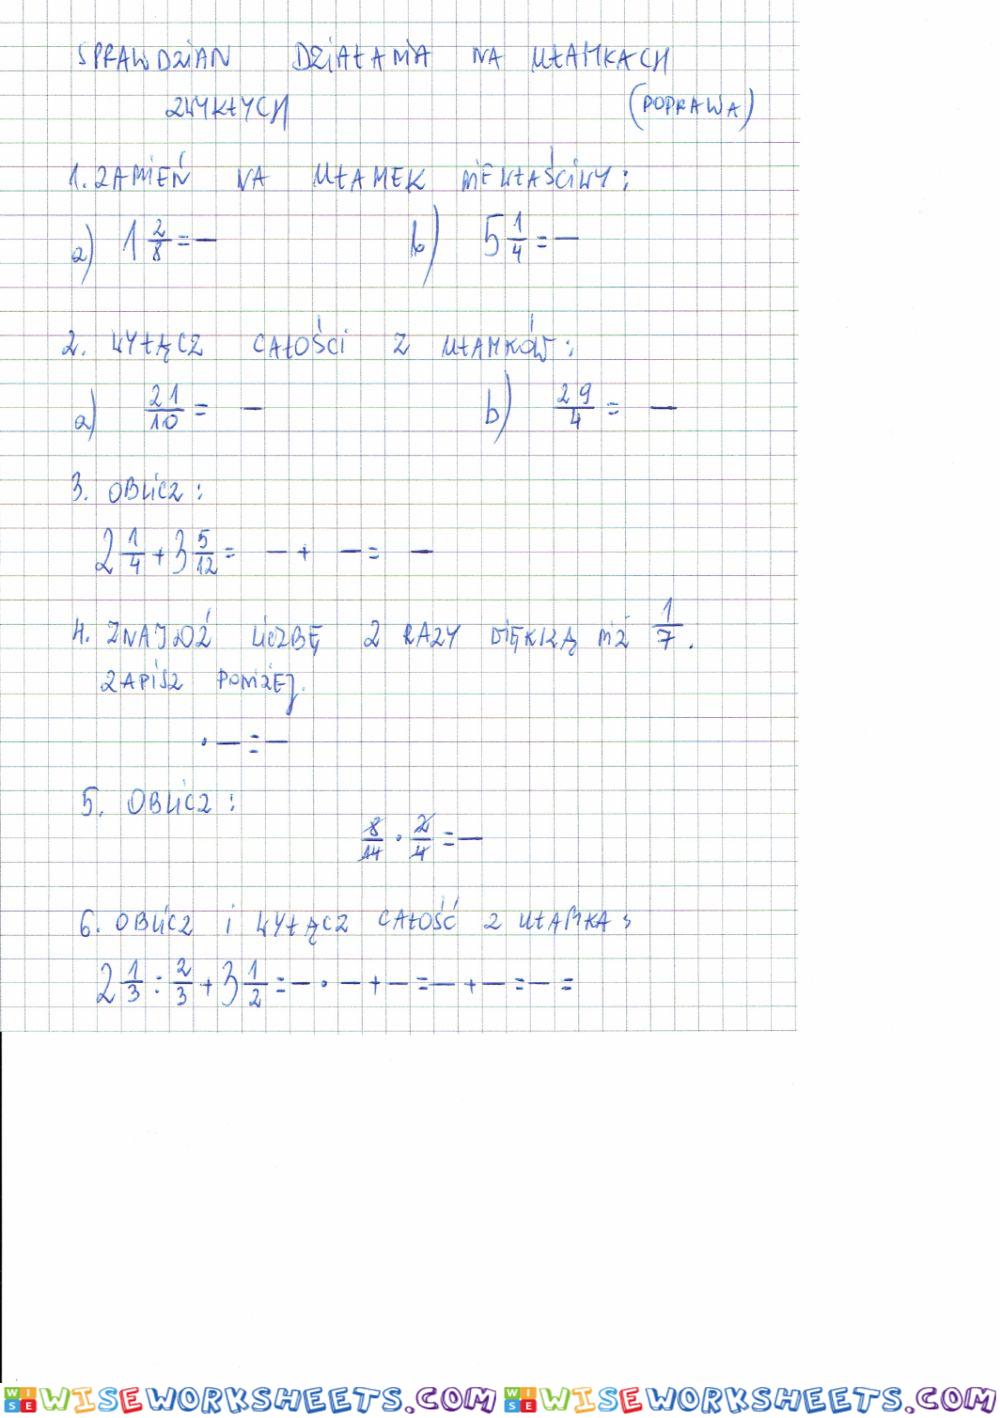 SPRAWDZIAN DZIAŁANIA NA UŁAMKACH
ZWYKŁYCH (POPRAWA)
1. ZAMIEŃ NA UŁAMEK NIEWŁAŚCIWY:
a) 1 2/8 = — b) 5 1/4 = —
2. WYŁĄCZ CAŁOŚCI Z UŁAMKÓW:
a) 21/10 = — b) 29/4 = —
3. OBLICZ:
2 1/4 + 3 5/12 = — + — = —
4. ZNAJDŹ LICZBĘ 2 RAZY WIĘKSZĄ NIŻ 1/7.
ZAPISZ PONIŻEJ.
· — = —
5. OBLICZ:
8/14 · 2/4 = —
6. OBLICZ I WYŁĄCZ CAŁOŚĆ Z UŁAMKA:
2 1/3 : 2/3 + 3 1/2 = — · — + — = — + — = — =
WISEWORKSHEETS.COM WISEWORKSHEETS.COM